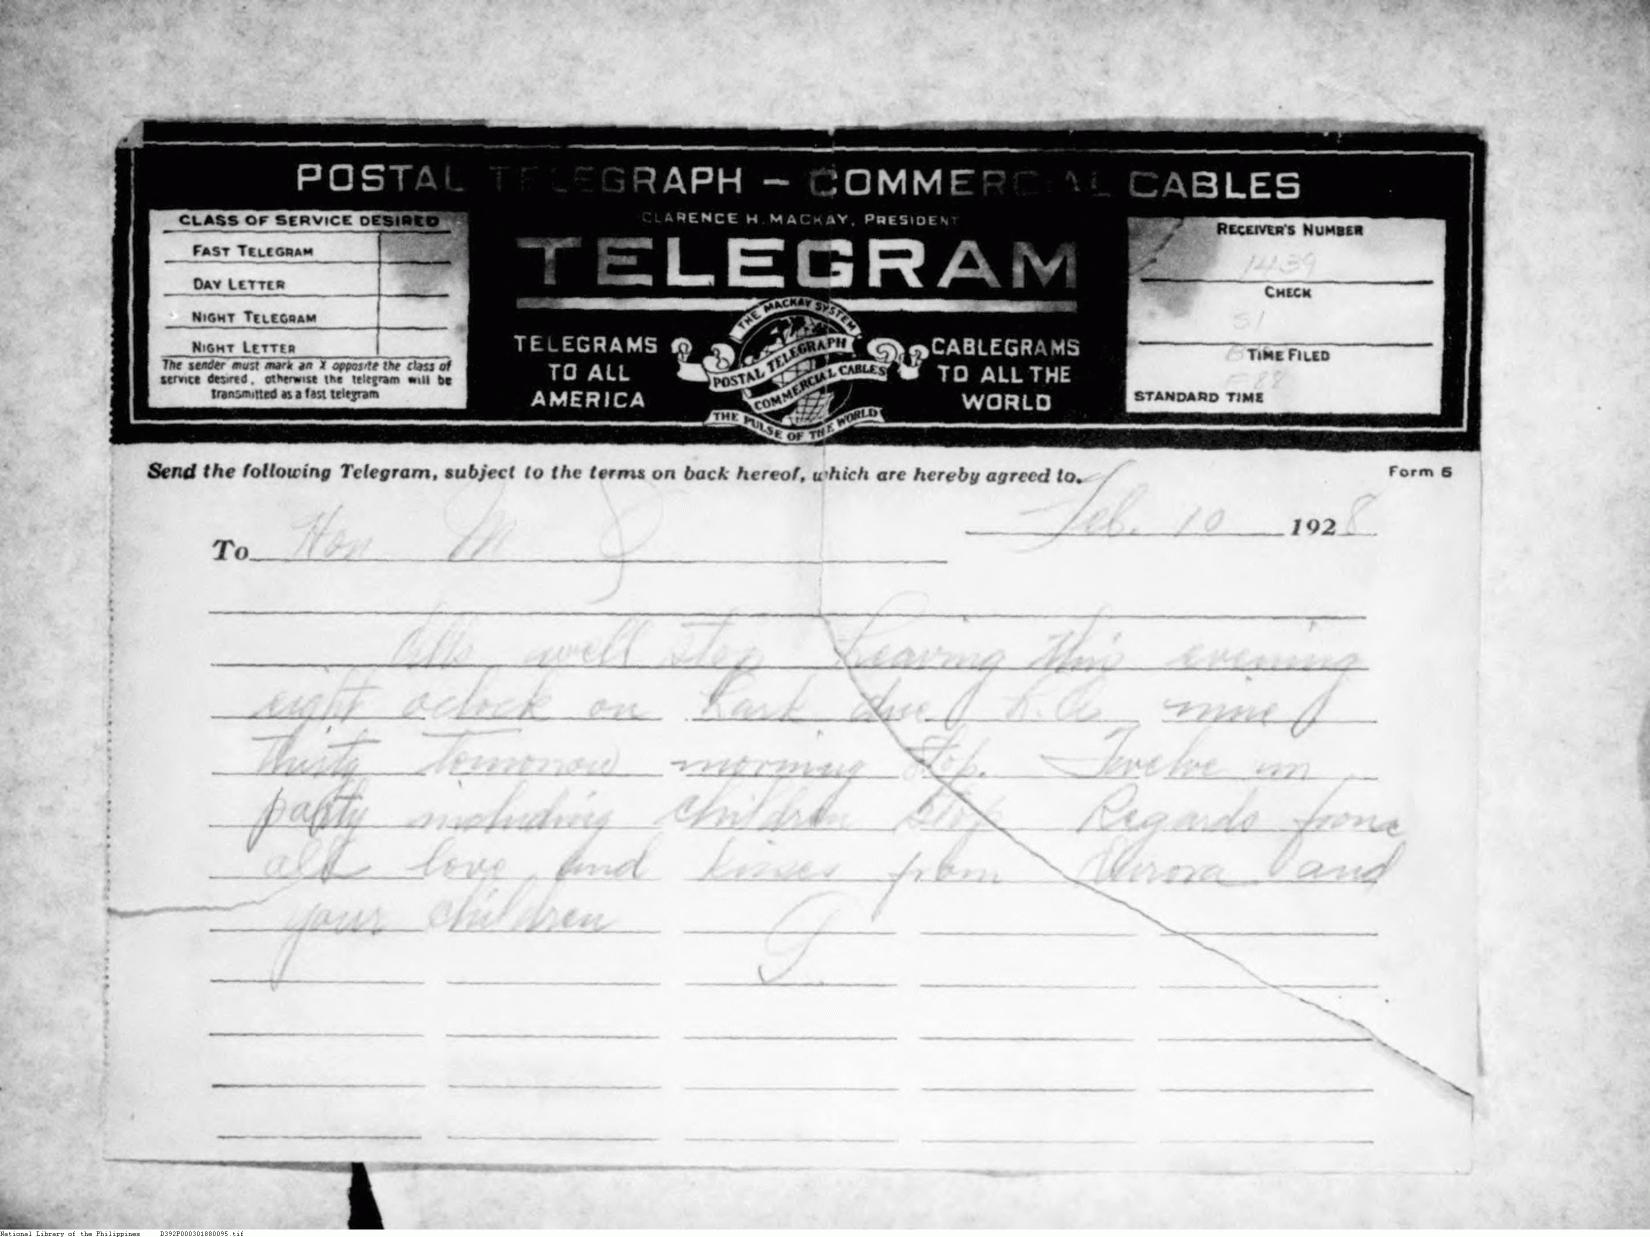 POSTAL TELEGRAPH – COMMERCIAL CABLES
CLARENCE H. MACKAY, PRESIDENT
TELEGRAM
CLASS OF SERVICE DESIRED
FAST TELEGRAM
DAY LETTER
NIGHT TELEGRAM
NIGHT LETTER
The sender must mark an X opposite the class of
service desired, otherwise the telegram will be
transmitted as a fast telegram
TELEGRAMS
TO ALL
AMERICA
THE MACKAY SYSTEM
POSTAL TELEGRAPH
COMMERCIAL CABLES
THE PULSE OF THE WORLD
CABLEGRAMS
TO ALL THE
WORLD
RECEIVER'S NUMBER
1439
CHECK
51
TIME FILED
STANDARD TIME
Send the following Telegram, subject to the terms on back hereof, which are hereby agreed to.
Form 6
Feb. 10 1928
To Hon M
well stop Leaving this evening
eight oclock on Lark due L.A. nine
thirty tomorrow morning stop. Twelve in
party including children stop Regards from
all love and kisses from Aurora and
your children
National Library of the Philippines D392P000301880095.tif